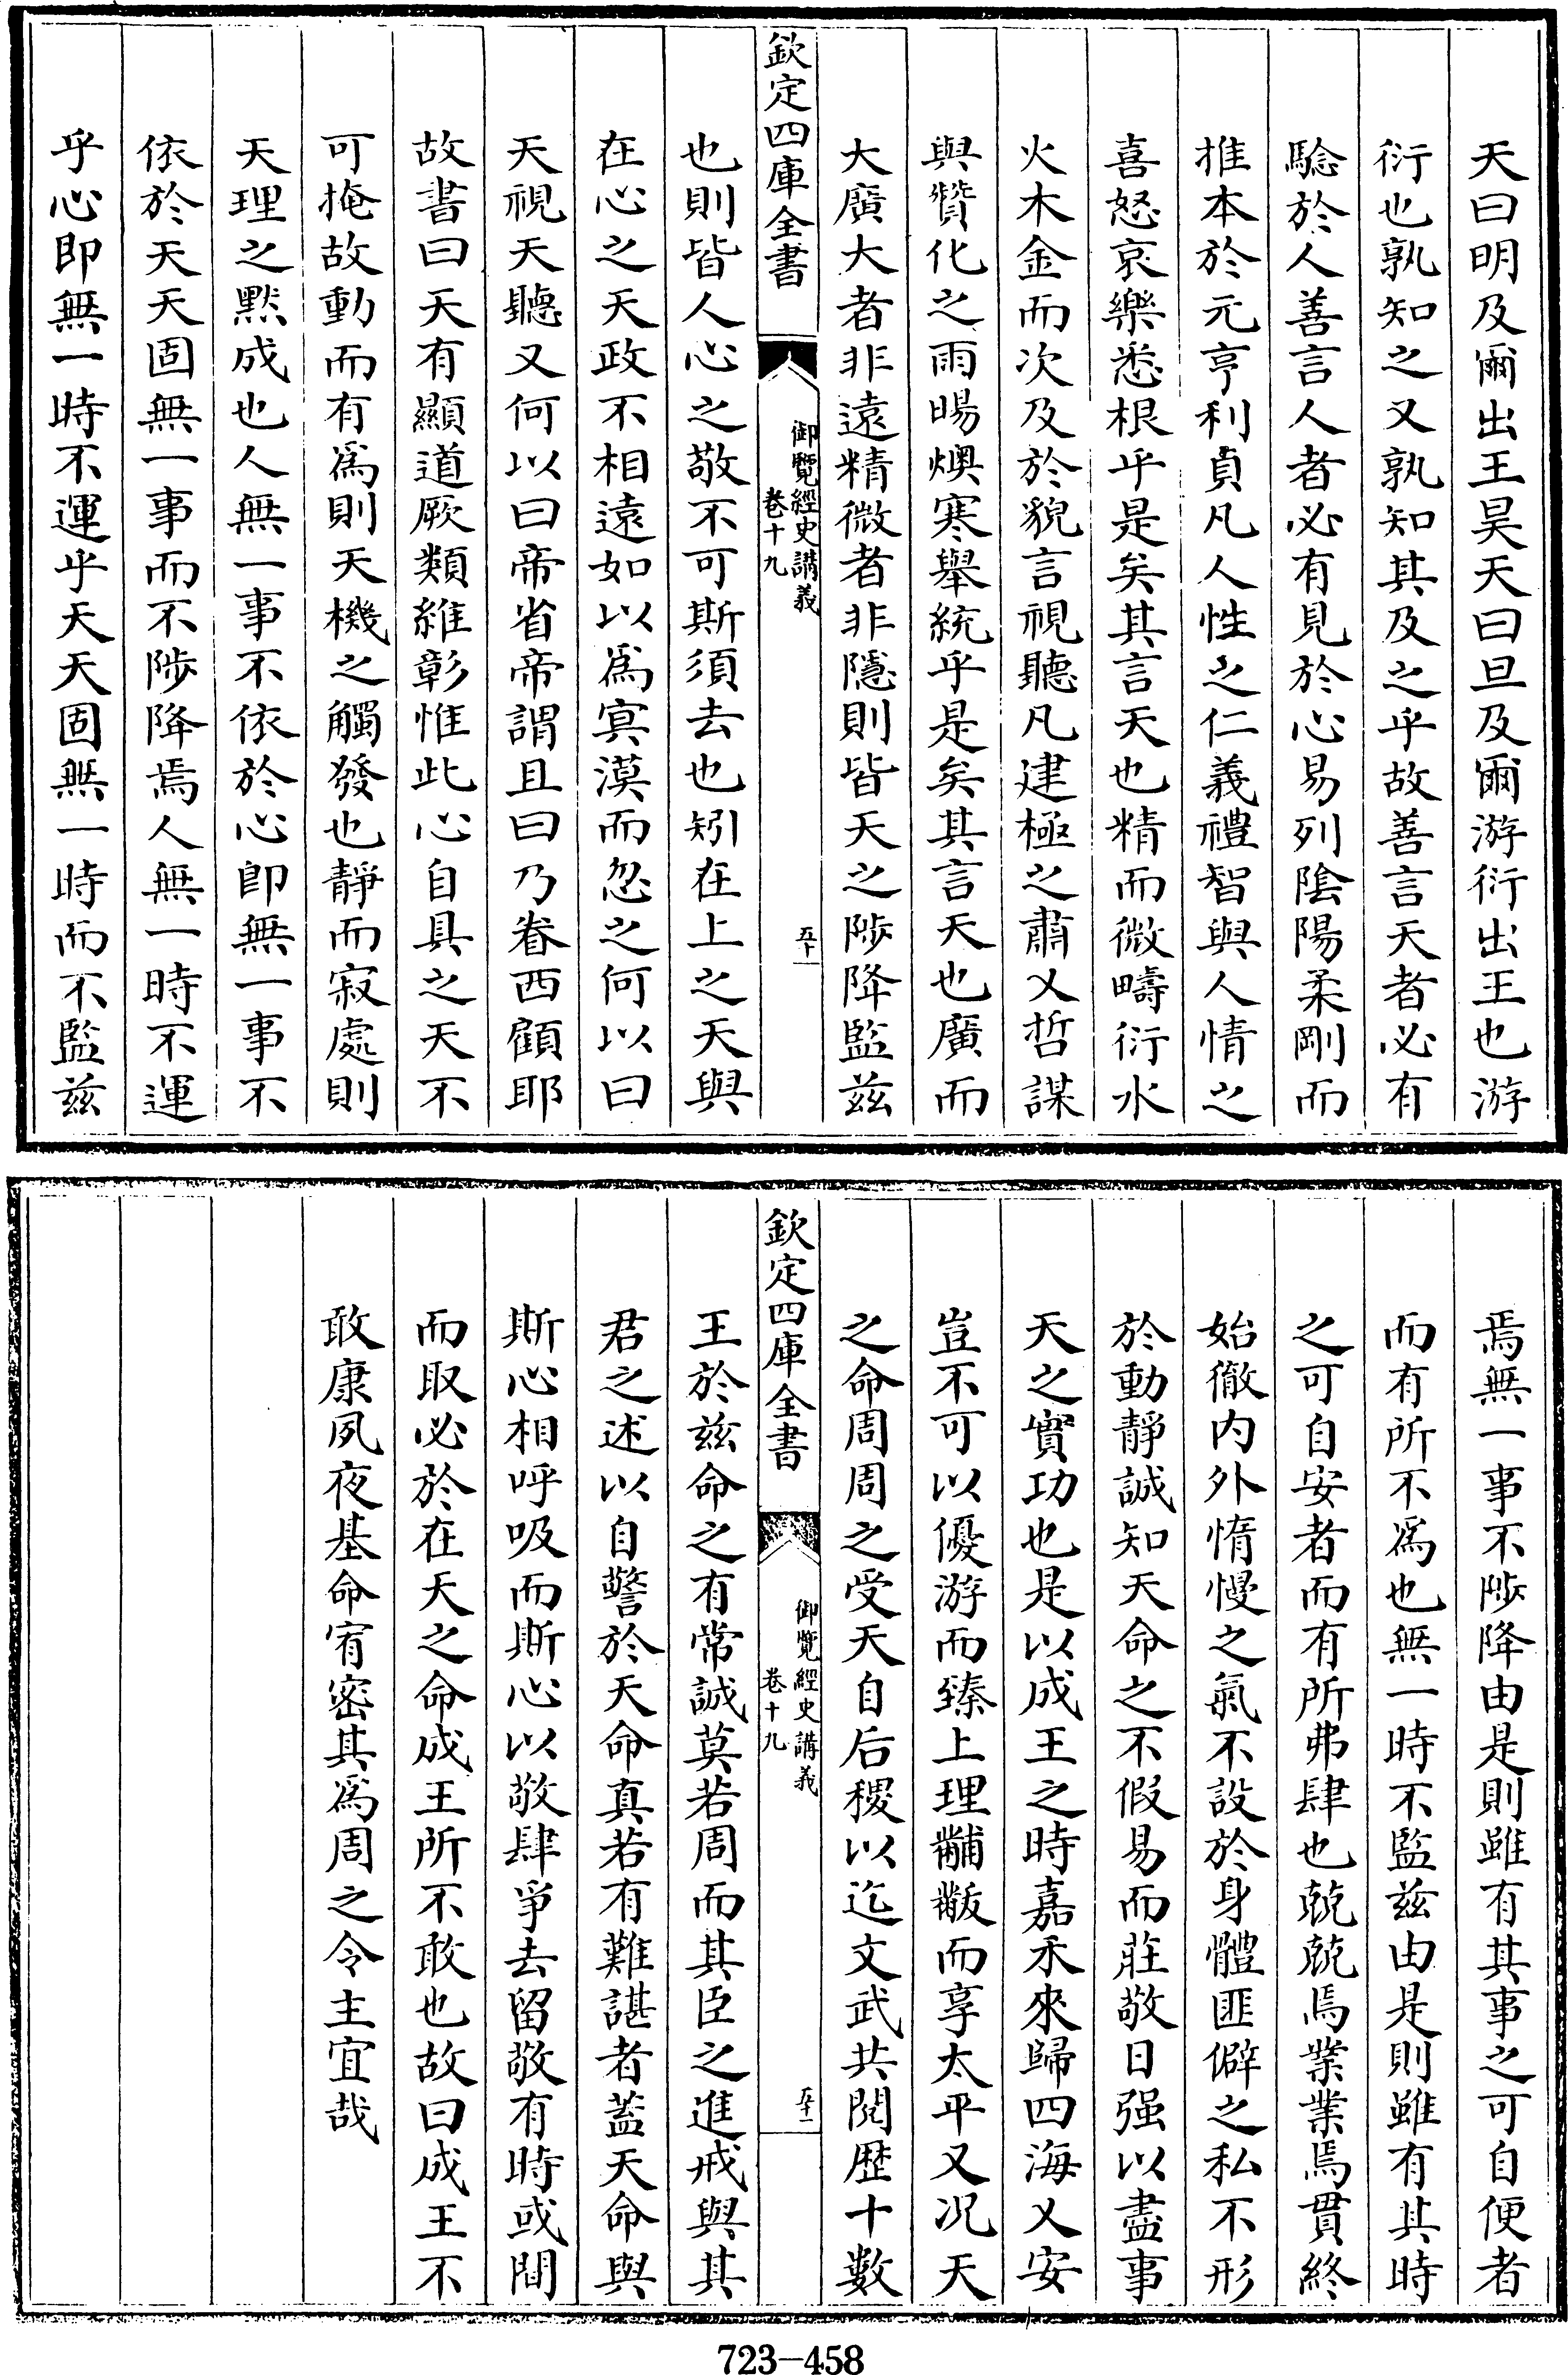 天曰明及爾出王昊天曰旦及爾游衍出王也游
衍也孰知之又孰知其及之乎故善言天者必有
騐於人善言人者必有見於心易列陰陽柔剛而
推本於元亨利貞凡人性之仁義禮智與人情之
喜怒哀樂悉根乎是矣其言天也精而微疇衍水
火木金而次及於貌言視聽凡建極之肅乂哲謀
與贊化之雨暘燠寒舉統乎是矣其言天也廣而
大廣大者非遠精微者非隱則皆天之陟降監兹
欽定四庫全書
御覽經史講義
卷十九
五十一
也則皆人心之敬不可斯須去也矧在上之天與
在心之天政不相遠如以爲㝠漠而忽之何以曰
天視天聽又何以曰帝省帝謂且曰乃眷西顧耶
故書曰天有顯道厥類維彰惟此心自具之天不
可掩故動而有爲則天機之觸發也靜而寂處則
天理之黙成也人無一事不依於心即無一事不
依於天天固無一事而不陟降焉人無一時不運
乎心即無一時不運乎天天固無一時而不監兹
焉無一事不陟降由是則雖有其事之可自便者
而有所不爲也無一時不監兹由是則雖有其時
之可自安者而有所弗肆也兢兢焉業業焉貫終
始徹内外惰慢之氣不設於身體匪僻之私不形
於動靜誠知天命之不假易而莊敬日强以盡事
天之實功也是以成王之時嘉禾來歸四海乂安
豈不可以優游而臻上理黼黻而享太平又况天
之命周周之受天自后稷以迄文武共閱歴十數
欽定四庫全書
御覽經史講義
卷十九
五十二
王於兹命之有常誠莫若周而其臣之進戒與其
君之述以自警於天命真若有難諶者葢天命與
斯心相呼吸而斯心以敬肆爭去留敬有時或間
而取必於在天之命成王所不敢也故曰成王不
敢康夙夜基命宥密其爲周之令主宜哉
723-458